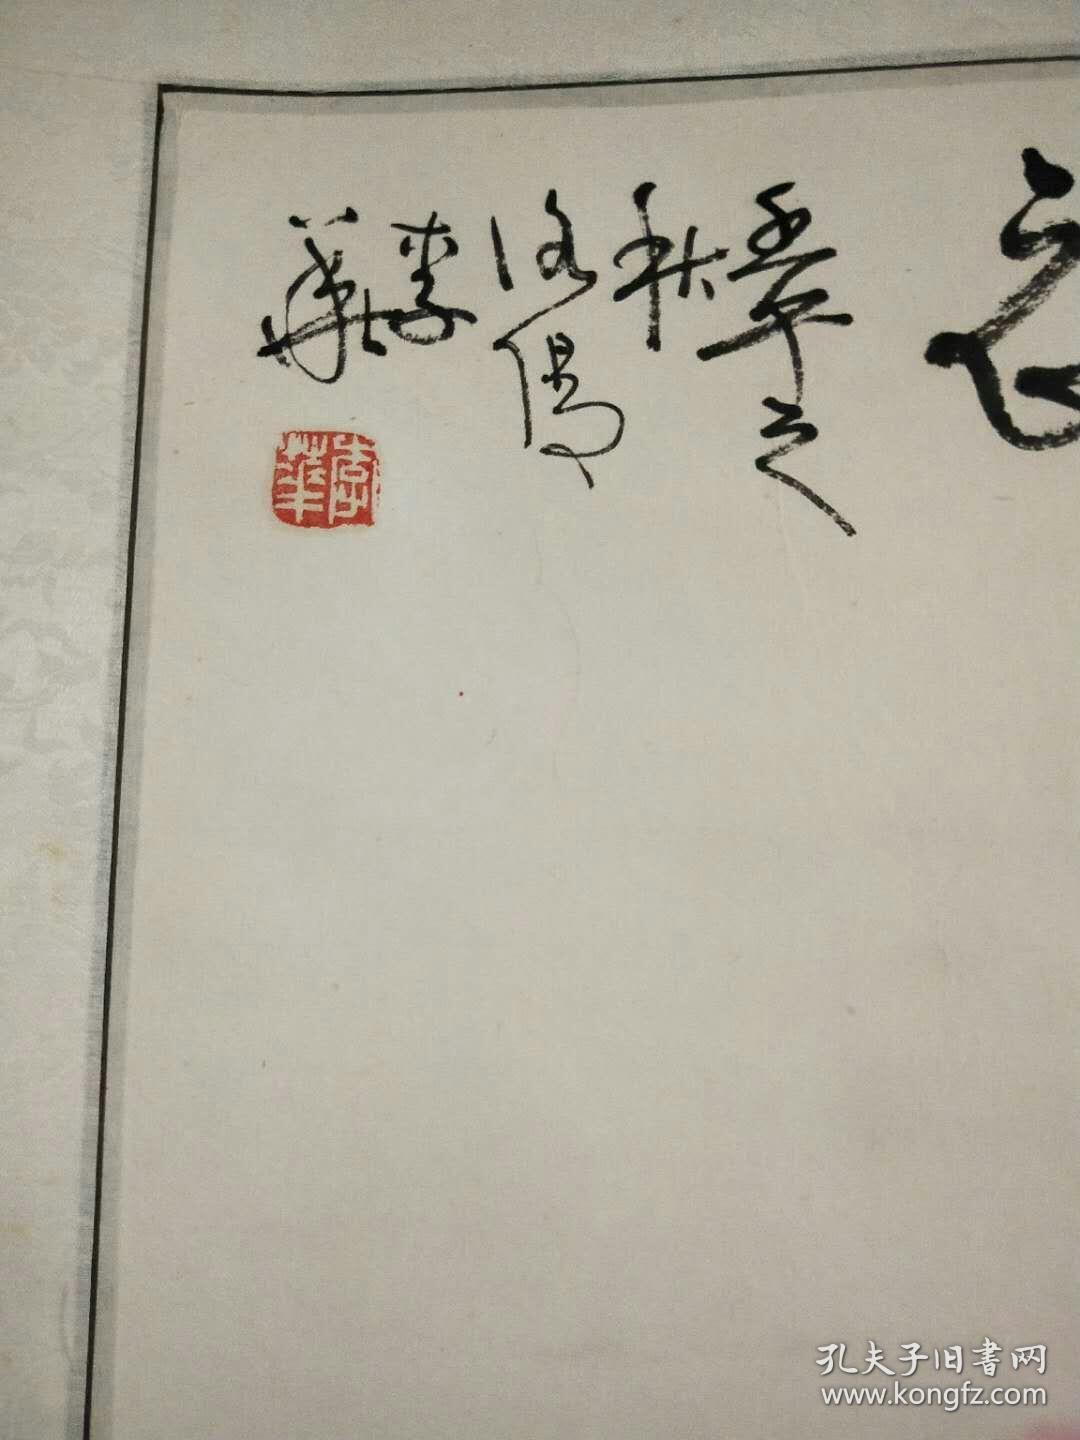 之
秋
洛陽
李
華
李華
孔夫子旧書网
www.kongfz.com